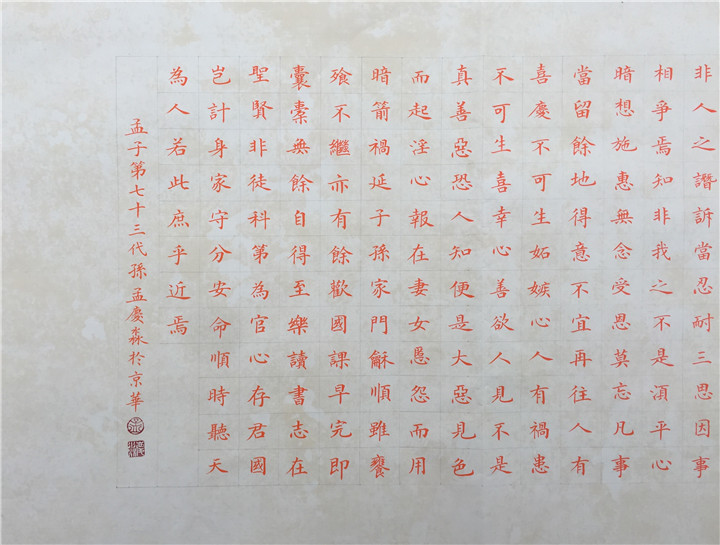 非人之譖訴當忍耐三思因事
相爭焉知非我之不是湏平心
暗想施惠無念受恩莫忘凡事
當留餘地得意不宜再往人有
喜慶不可生妬嫉心人有禍患
不可生喜幸心善欲人見不是
真善惡恐人知便是大惡見色
而起淫心報在妻女慝怨而用
暗箭禍延子孫家門穌順雖饔
飱不繼亦有餘歡國課早完即
囊橐無餘自得至樂讀書志在
聖賢非徒科第為官心存君國
豈計身家守分安命順時聽天
為人若此庶乎近焉
孟子第七十三代孫孟慶淼於京華